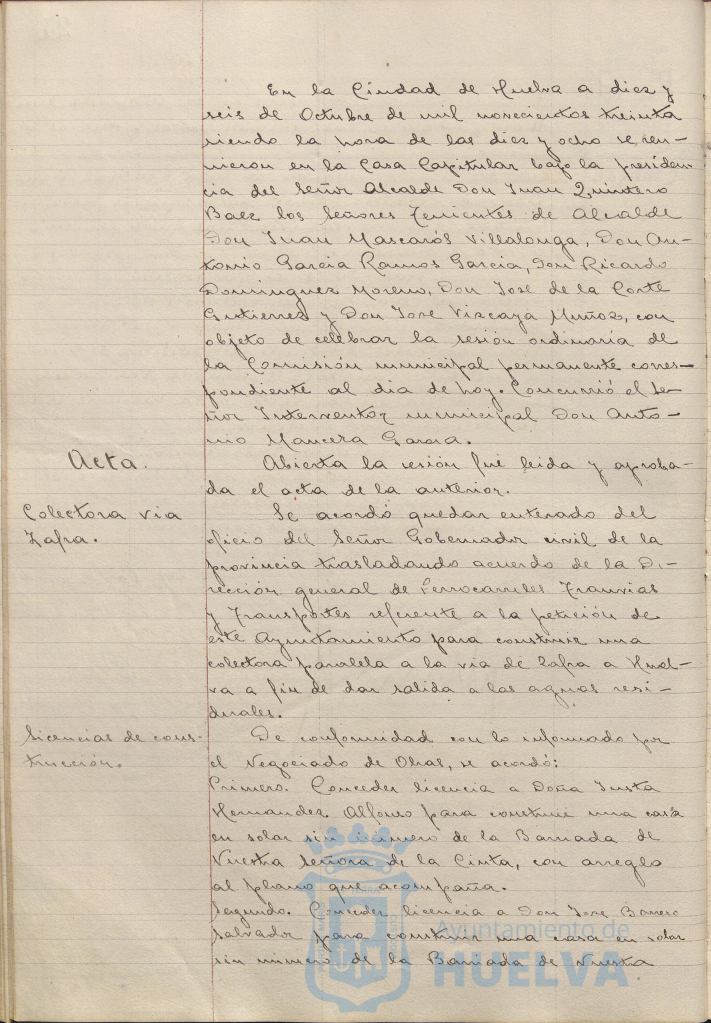 En la Ciudad de Huelva a diez y
seis de Octubre de mil novecientos treinta
siendo la hora de las diez y ocho se reu-
nieron en la Casa Capitular bajo la presiden-
cia del Señor Alcalde Don Juan Quintero
Baez los Señores Tenientes de Alcalde
Don Juan Mascarós Villalonga, Don An-
tonio Garcia Ramos Garcia, Don Ricardo
Dominguez Moreno, Don Jose de la Corte
Gutierrez y Don Jose Vizcaya Muñoz, con
objeto de celebrar la sesión ordinaria de
la Comisión municipal permanente corres-
pondiente al dia de hoy. Concurrió el Se-
ñor Interventor municipal Don Anto-
nio Mancera Garcia.
Acta.
Abierta la sesión fué leida y aproba-
da el acta de la anterior.
Colectora via
Zafra.
Se acordó quedar enterado del
oficio del Señor Gobernador civil de la
provincia trasladando acuerdo de la Di-
rección general de Ferrocarriles Tranvias
y Transportes referente a la petición de
este Ayuntamiento para construir una
colectora paralela a la via de Zafra a Huel-
va a fin de dar salida a las aguas resi-
duales.
Licencias de cons-
trucción.
De conformidad con lo informado por
el Negociado de Obras, se acordó:
Primero. Conceder licencia a Doña Justa
Hernandez Alfonso para construir una casa
en solar sin número de la Barriada de
Nuestra Señora de la Cinta, con arreglo
al plano que acompaña.
Segundo. Conceder licencia a Don Jose Borrero
Salvador para construir una casa en solar
sin número de la Barriada de Nuestra
Ayuntamiento de
HUELVA